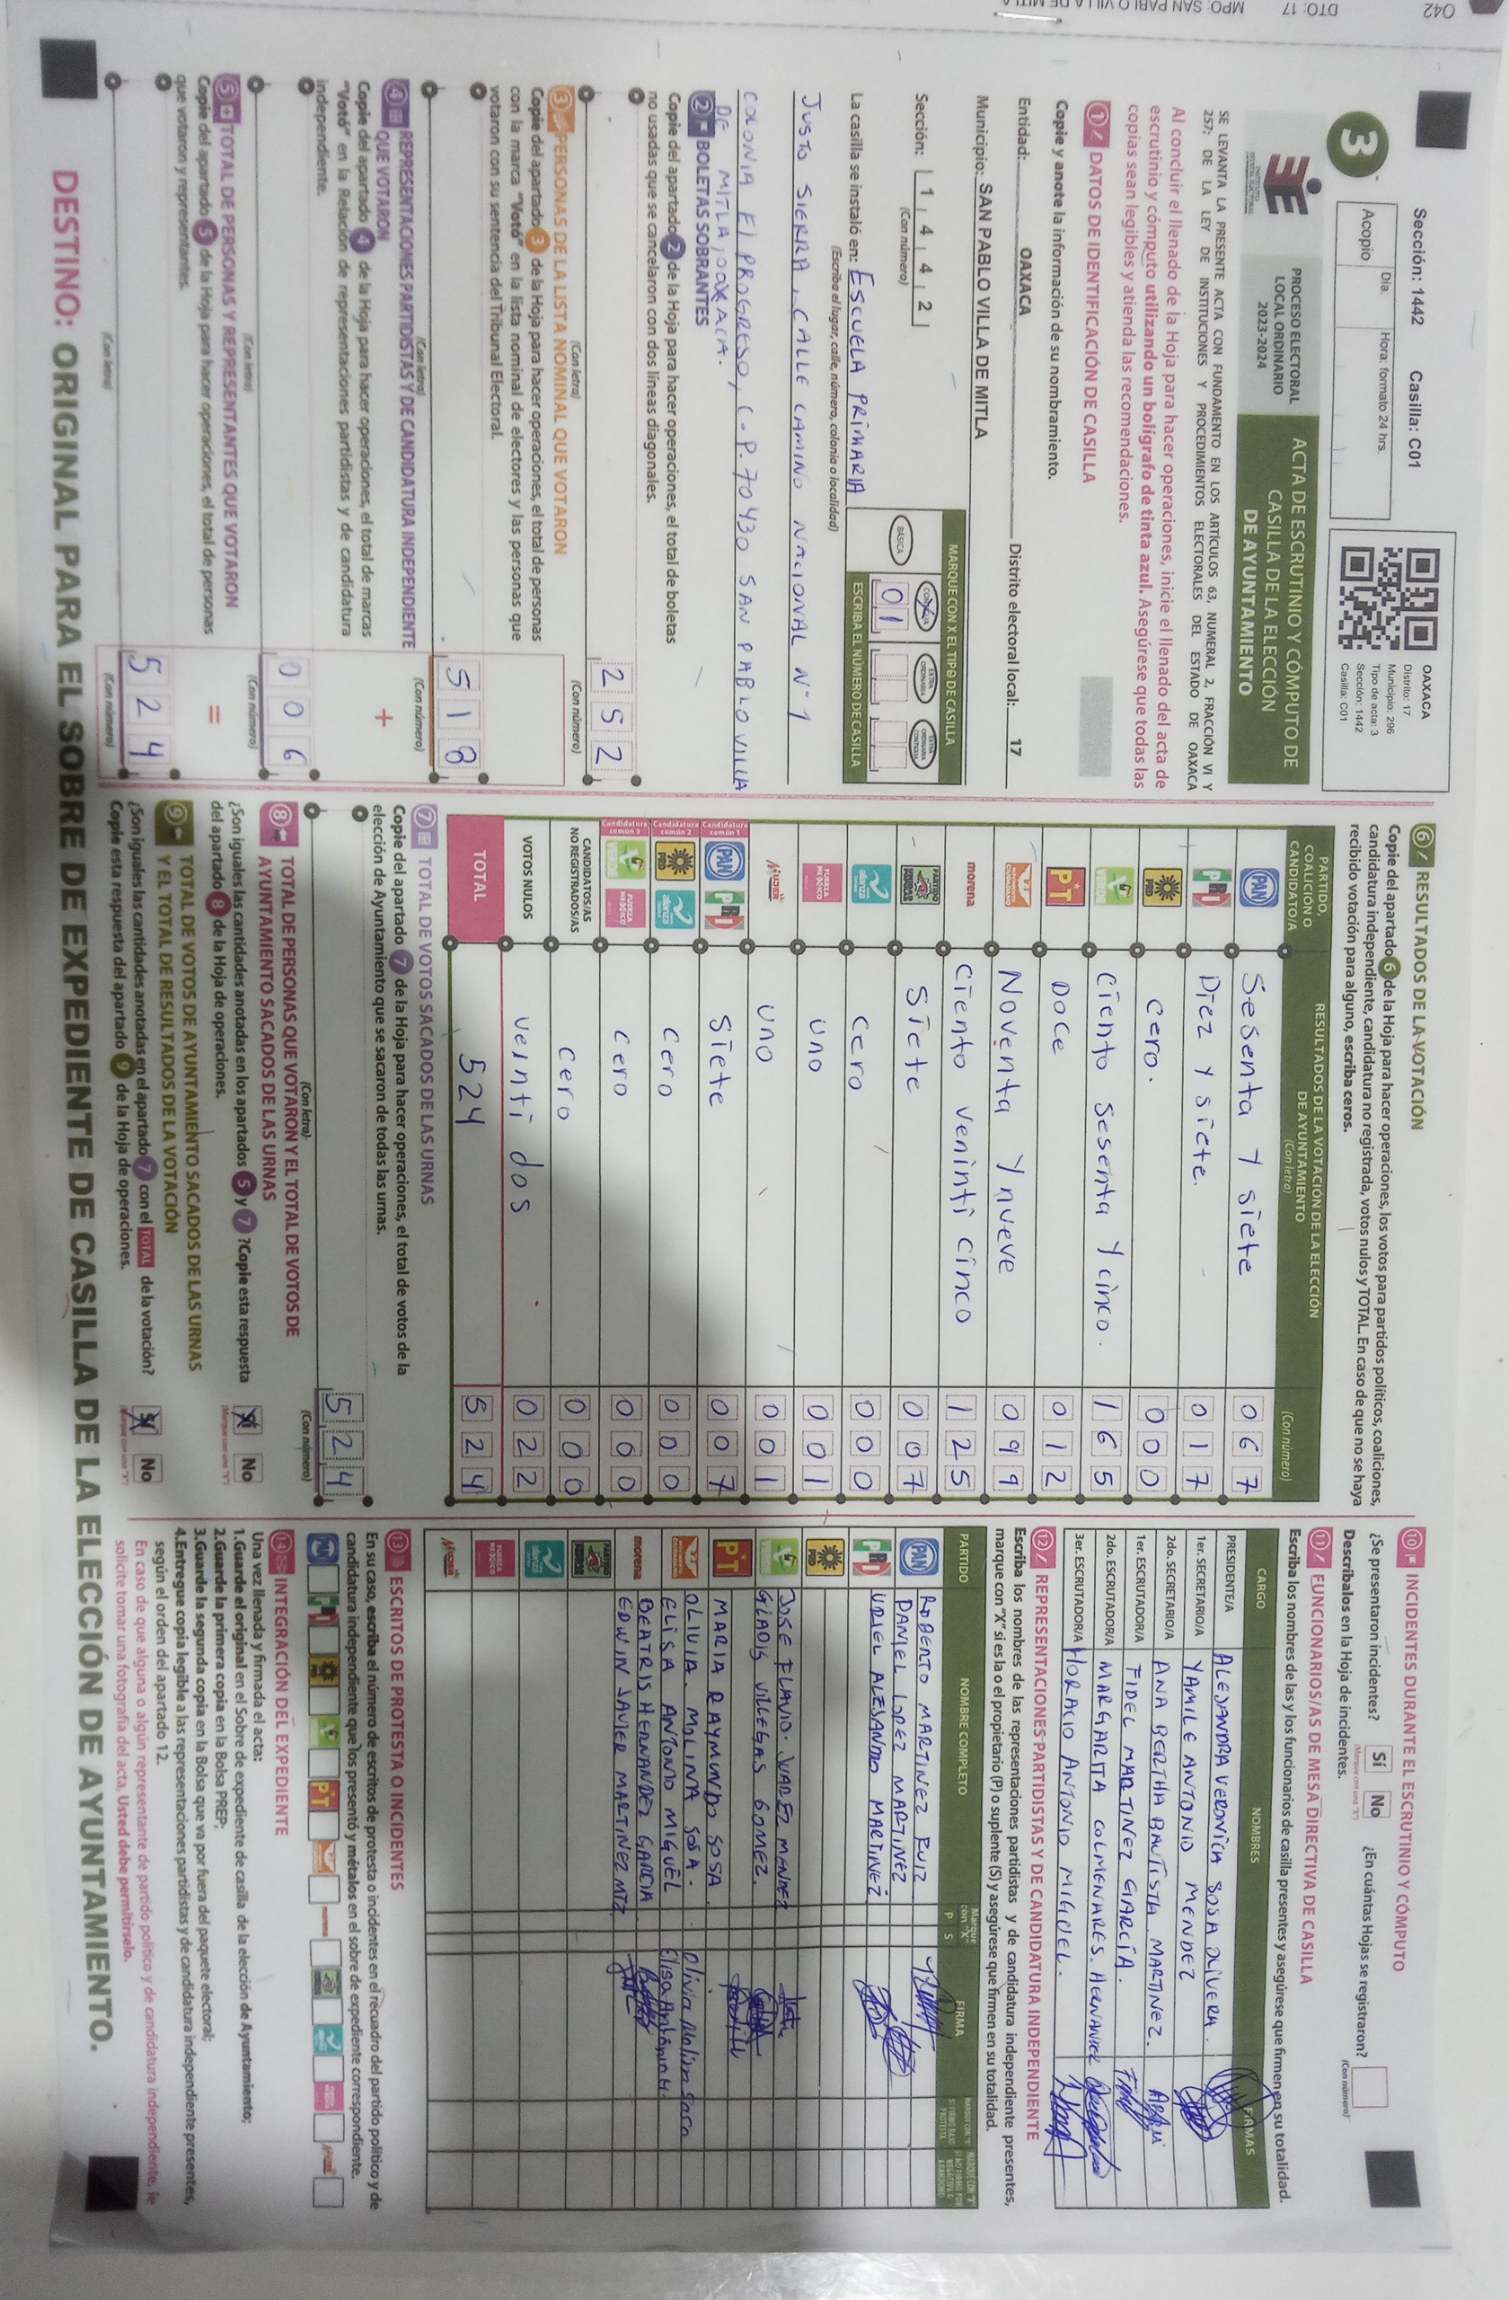 042
DTO: 17
MPO: SAN PABLO VILLA DE MITLA
Sección: 1442 Casilla: C01
3
Día. Hora: formato 24 hrs.
Acopio
OAXACA
Distrito: 17
Municipio: 296
Tipo de acta: 3
Sección: 1442
Casilla: C01
PROCESO ELECTORAL
LOCAL ORDINARIO
2023-2024
ACTA DE ESCRUTINIO Y CÓMPUTO DE
CASILLA DE LA ELECCIÓN
DE AYUNTAMIENTO
SE LEVANTA LA PRESENTE ACTA CON FUNDAMENTO EN LOS ARTÍCULOS 63, NUMERAL 2, FRACCIÓN VI Y
257; DE LA LEY DE INSTITUCIONES Y PROCEDIMIENTOS ELECTORALES DEL ESTADO DE OAXACA
Al concluir el llenado de la Hoja para hacer operaciones, inicie el llenado del acta de
escrutinio y cómputo utilizando un bolígrafo de tinta azul. Asegúrese que todas las
copias sean legibles y atienda las recomendaciones.
1 DATOS DE IDENTIFICACIÓN DE CASILLA
Copie y anote la información de su nombramiento.
Entidad: OAXACA Distrito electoral local: 17
Municipio: SAN PABLO VILLA DE MITLA
Sección: 1 4 4 2
(Con número)
MARQUE CON X EL TIPO DE CASILLA
BÁSICA
ESCRIBA EL NÚMERO DE CASILLA
01
La casilla se instaló en: ESCUELA PRIMARIA
(Escriba el lugar, calle, número, colonia o localidad)
JUSTO SIERRA, CALLE CAMINO NACIONAL N-1
COLONIA El PROGRESO, C-P. 70430 SAN PABLO VILLA
DE MITLA, OAXACA.
2 BOLETAS SOBRANTES
Copie del apartado 2 de la Hoja para hacer operaciones, el total de boletas
no usadas que se cancelaron con dos líneas diagonales.
252
(Con letra) (Con número)
3 PERSONAS DE LA LISTA NOMINAL QUE VOTARON
Copie del apartado 3 de la Hoja para hacer operaciones, el total de personas
con la marca "Votó" en la lista nominal de electores y las personas que
votaron con su sentencia del Tribunal Electoral.
518
(Con letra) (Con número)
4 REPRESENTACIONES PARTIDISTAS Y DE CANDIDATURA INDEPENDIENTE
QUE VOTARON
+
Copie del apartado 4 de la Hoja para hacer operaciones, el total de marcas
"Votó" en la Relación de representaciones partidistas y de candidatura
independiente.
006
(Con letra) (Con número)
5 TOTAL DE PERSONAS Y REPRESENTANTES QUE VOTARON
=
Copie del apartado 5 de la Hoja para hacer operaciones, el total de personas
que votaron y representantes.
524
(Con letra) (Con número)
6 RESULTADOS DE LA VOTACIÓN
Copie del apartado 6 de la Hoja para hacer operaciones, los votos para partidos políticos, coaliciones,
candidatura independiente, candidatura no registrada, votos nulos y TOTAL. En caso de que no se haya
recibido votación para alguno, escriba ceros.
PARTIDO,
COALICIÓN O
CANDIDATO/A
RESULTADOS DE LA VOTACIÓN DE LA ELECCIÓN
DE AYUNTAMIENTO
(Con letra) (Con número)
PAN Sesenta y siete 067
PRI Diez y siete. 017
PRD cero. 000
VERDE ciento sesenta y cinco. 165
PT DOCE 012
Noventa y nueve 099
morena ciento veninti cinco 125
siete 007
alianza cero 000
FUERZA MÉXICO uno 001
MUJER uno 001
Candidatura común 1 PAN PRI siete 007
Candidatura común 2 PRD alianza cero 000
Candidatura común 3 VERDE FUERZA MÉXICO cero 000
CANDIDATOS/AS
NO REGISTRADOS/AS cero 000
VOTOS NULOS veinti dos 022
TOTAL 524 524
7 TOTAL DE VOTOS SACADOS DE LAS URNAS
Copie del apartado 7 de la Hoja para hacer operaciones, el total de votos de la
elección de Ayuntamiento que se sacaron de todas las urnas.
524
(Con letra) (Con número)
8 TOTAL DE PERSONAS QUE VOTARON Y EL TOTAL DE VOTOS DE
AYUNTAMIENTO SACADOS DE LAS URNAS
¿Son iguales las cantidades anotadas en los apartados 5 y 7 ?Copie esta respuesta
del apartado 8 de la Hoja de operaciones.
Sí No
9 TOTAL DE VOTOS DE AYUNTAMIENTO SACADOS DE LAS URNAS
Y EL TOTAL DE RESULTADOS DE LA VOTACIÓN
¿Son iguales las cantidades anotadas en el apartado 7 con el TOTAL de la votación?
Copie esta respuesta del apartado 9 de la Hoja de operaciones.
Sí No
10 INCIDENTES DURANTE EL ESCRUTINIO Y CÓMPUTO
¿Se presentaron incidentes? Sí No ¿En cuántas Hojas se registraron?
(Marque con "X") (Con número)
Descríbalos en la Hoja de incidentes.
11 FUNCIONARIOS/AS DE MESA DIRECTIVA DE CASILLA
Escriba los nombres de las y los funcionarios de casilla presentes y asegúrese que firmen en su totalidad.
CARGO NOMBRES FIRMAS
PRESIDENTE/A ALEJANDRA VERONICA SOSA OLIVERA.
1er. SECRETARIO/A YAMILE ANTONIO MENDEZ
2do. SECRETARIO/A ANA BERTHA BAUTISTA MARTINEZ.
1er. ESCRUTADOR/A FIDEL MARTINEZ GARCÍA.
2do. ESCRUTADOR/A MARGARITA COLMENARES. HERNANDEZ
3er. ESCRUTADOR/A HORACIO ANTONIO MIGUEL.
12 REPRESENTACIONES PARTIDISTAS Y DE CANDIDATURA INDEPENDIENTE
Escriba los nombres de las representaciones partidistas y de candidatura independiente presentes,
marque con "X" si es la o el propietario (P) o suplente (S) y asegúrese que firmen en su totalidad.
PARTIDO NOMBRE COMPLETO Marque con "X" P S FIRMA
PAN ROBERTO MARTINEZ RUIZ
DANIEL LOPEZ MARTINEZ
PRI URIEL ALESANDO MARTINEZ.
PRD
VERDE JOSE FLAVIO. JUAREZ MENDEZ
GLADIS VILLEGAS GOMEZ.
PT
MARIA RAYMUNDO SOSA
OLIVIA. MOLINA SOSA. Olivia Molina Sosa
ELISA ANTONIO MIGUEL Elisa Antonio M.
morena BEATRIS HERNANDEZ GARCIA
EDWIN JAVIER MARTINEZ MTZ
alianza
FUERZA MÉXICO
MUJER
13 ESCRITOS DE PROTESTA O INCIDENTES
En su caso, escriba el número de escritos de protesta o incidentes en el recuadro del partido político y de
candidatura independiente que los presentó y métalos en el sobre de expediente correspondiente.
14 INTEGRACIÓN DEL EXPEDIENTE
Una vez llenada y firmada el acta:
1.Guarde el original en el Sobre de expediente de casilla de la elección de Ayuntamiento;
2.Guarde la primera copia en la Bolsa PREP;
3.Guarde la segunda copia en la Bolsa que va por fuera del paquete electoral;
4.Entregue copia legible a las representaciones partidistas y de candidatura independiente presentes,
según el orden del apartado 12.
En caso de que alguna o algún representante de partido político y de candidatura independiente, le
solicite tomar una fotografía del acta. Usted debe permitírselo.
DESTINO: ORIGINAL PARA EL SOBRE DE EXPEDIENTE DE CASILLA DE LA ELECCIÓN DE AYUNTAMIENTO.